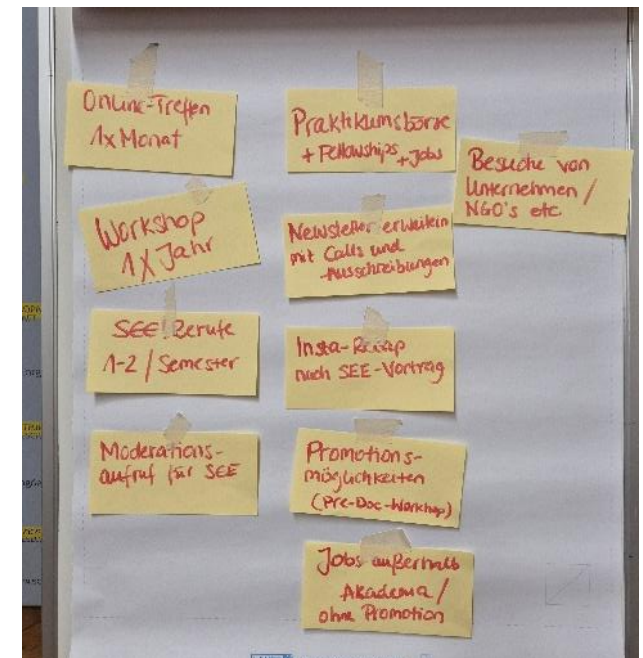 Online-Treffen
1x Monat
Workshop
1x Jahr
SEE! Berufe
1-2 / Semester
Moderations-
aufruf für SEE
Praktikumsbörse
+ Fellowships + Jobs
Newsletter erweitern
mit Calls und
Ausschreibungen
Insta-Recap
nach SEE-Vortrag
Promotions-
möglichkeiten
(Pre-Doc-Workshop)
Jobs außerhalb
Akademia /
ohne Promotion
Besuche von
Unternehmen /
NGO's etc